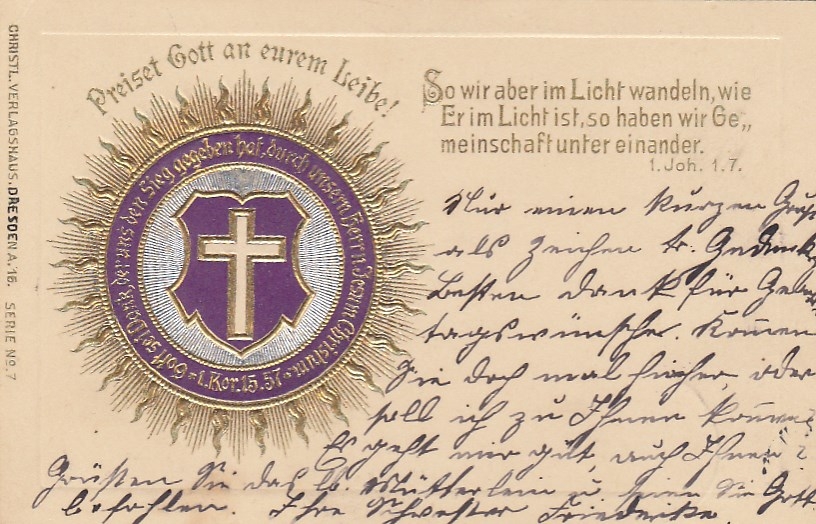 CHRISTL. VERLAGSHAUS. DRESDEN A. 16. SERIE No. 7
Preiset Gott an eurem Leibe!
Gott sei Dank, der uns den Sieg gegeben hat, durch unsern Herrn Jesum Christum
1. Kor. 15. 57
So wir aber im Licht wandeln, wie
Er im Licht ist, so haben wir Ge„
meinschaft unter einander.
1. Joh. 1. 7.
Nur einen kurzen Gruß
als Zeichen tr. Gedenk
Besten Dank für Gebur
tagswünsche. Kommen
Sie doch mal hieher, oder
soll ich zu Ihnen kommen?
Es geht mir gut, auch Ihnen?
Grüßen Sie das lb. Mütterlein u. seien Sie Gott
befohlen. Ihre Schwester Friederike